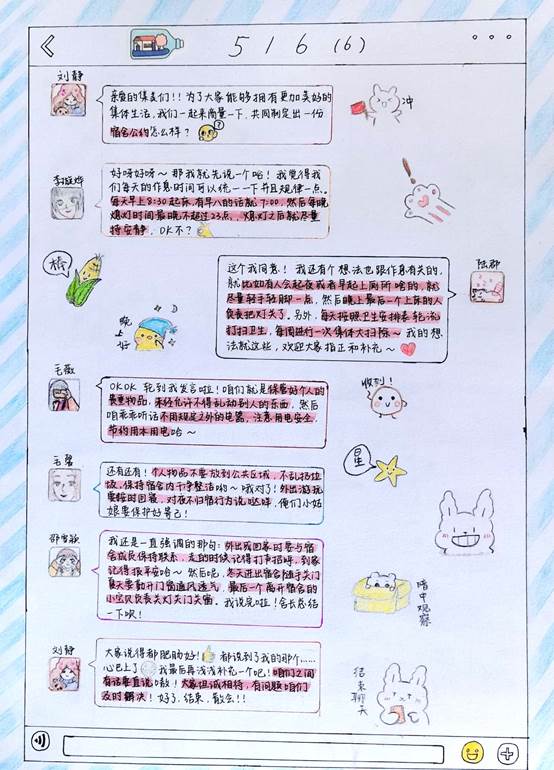 516(6)
刘静
亲爱的集美们!!为了大家能够拥有更加美好的
集体生活,我们一起来商量一下,共同制定出一份
宿舍公约怎么样?
?
冲
李姬烨
好呀好呀~那我就先说一个哈!我觉得我
们每天的作息时间可以统一一下并且规律一点。
每天早上8:30起床,有早八的话就7:00,然后每晚
熄灯时间最晚不超过23点,熄灯之后就尽量
持安静,OK不?
棒
陆郡
这个我同意!我还有个想法也跟作息有关的,
就比如有人会起夜或者早起上厕所啥的,就
尽量轻手轻脚一点,然后晚上最后一个上床的人
负责把灯关了。另外,每天按照卫生安排表轮流
打扫卫生,每周进行一次集体大扫除~我的想
法就这些,欢迎大家指正和补充~
晚上好
毛薇
OKOK 轮到我发言啦!咱们就是保管好个人的
贵重物品,未经允许不得乱动别人的东西,然后
咱乖乖听话不用规定之外的电器,注意用电安全,
节约用水用电哈~
收到!
毛馨
还有还有!个人物品不要放到公共区域,不乱扔垃
圾,保持宿舍内干净整洁哟~哦对了!外出游玩
要按时回寝,对夜不归宿行为说哒咩,俺们小姑
娘要保护好自己!
星
邵雪歌
我还是一直强调的那句:外出或回家时要与宿
舍成员保持联系,走的时候记得打声招呼,到家
记得报平安哈~然后呢,冬天进出宿舍随手关门
夏天要勤开门窗通风透气,最后一个离开宿舍的
小宝贝负责关灯关门关窗。我说完啦!舍长总结
一下呗!
暗中观察
刘静
大家说得都肥肠好!都说到了我的那个……
心巴上了我最后再浅浅补充一个吧!咱们之间
有话要直说哟敖!大家坦诚相待,有问题咱们
及时解决!好了,结束,散会!!
结束聊天